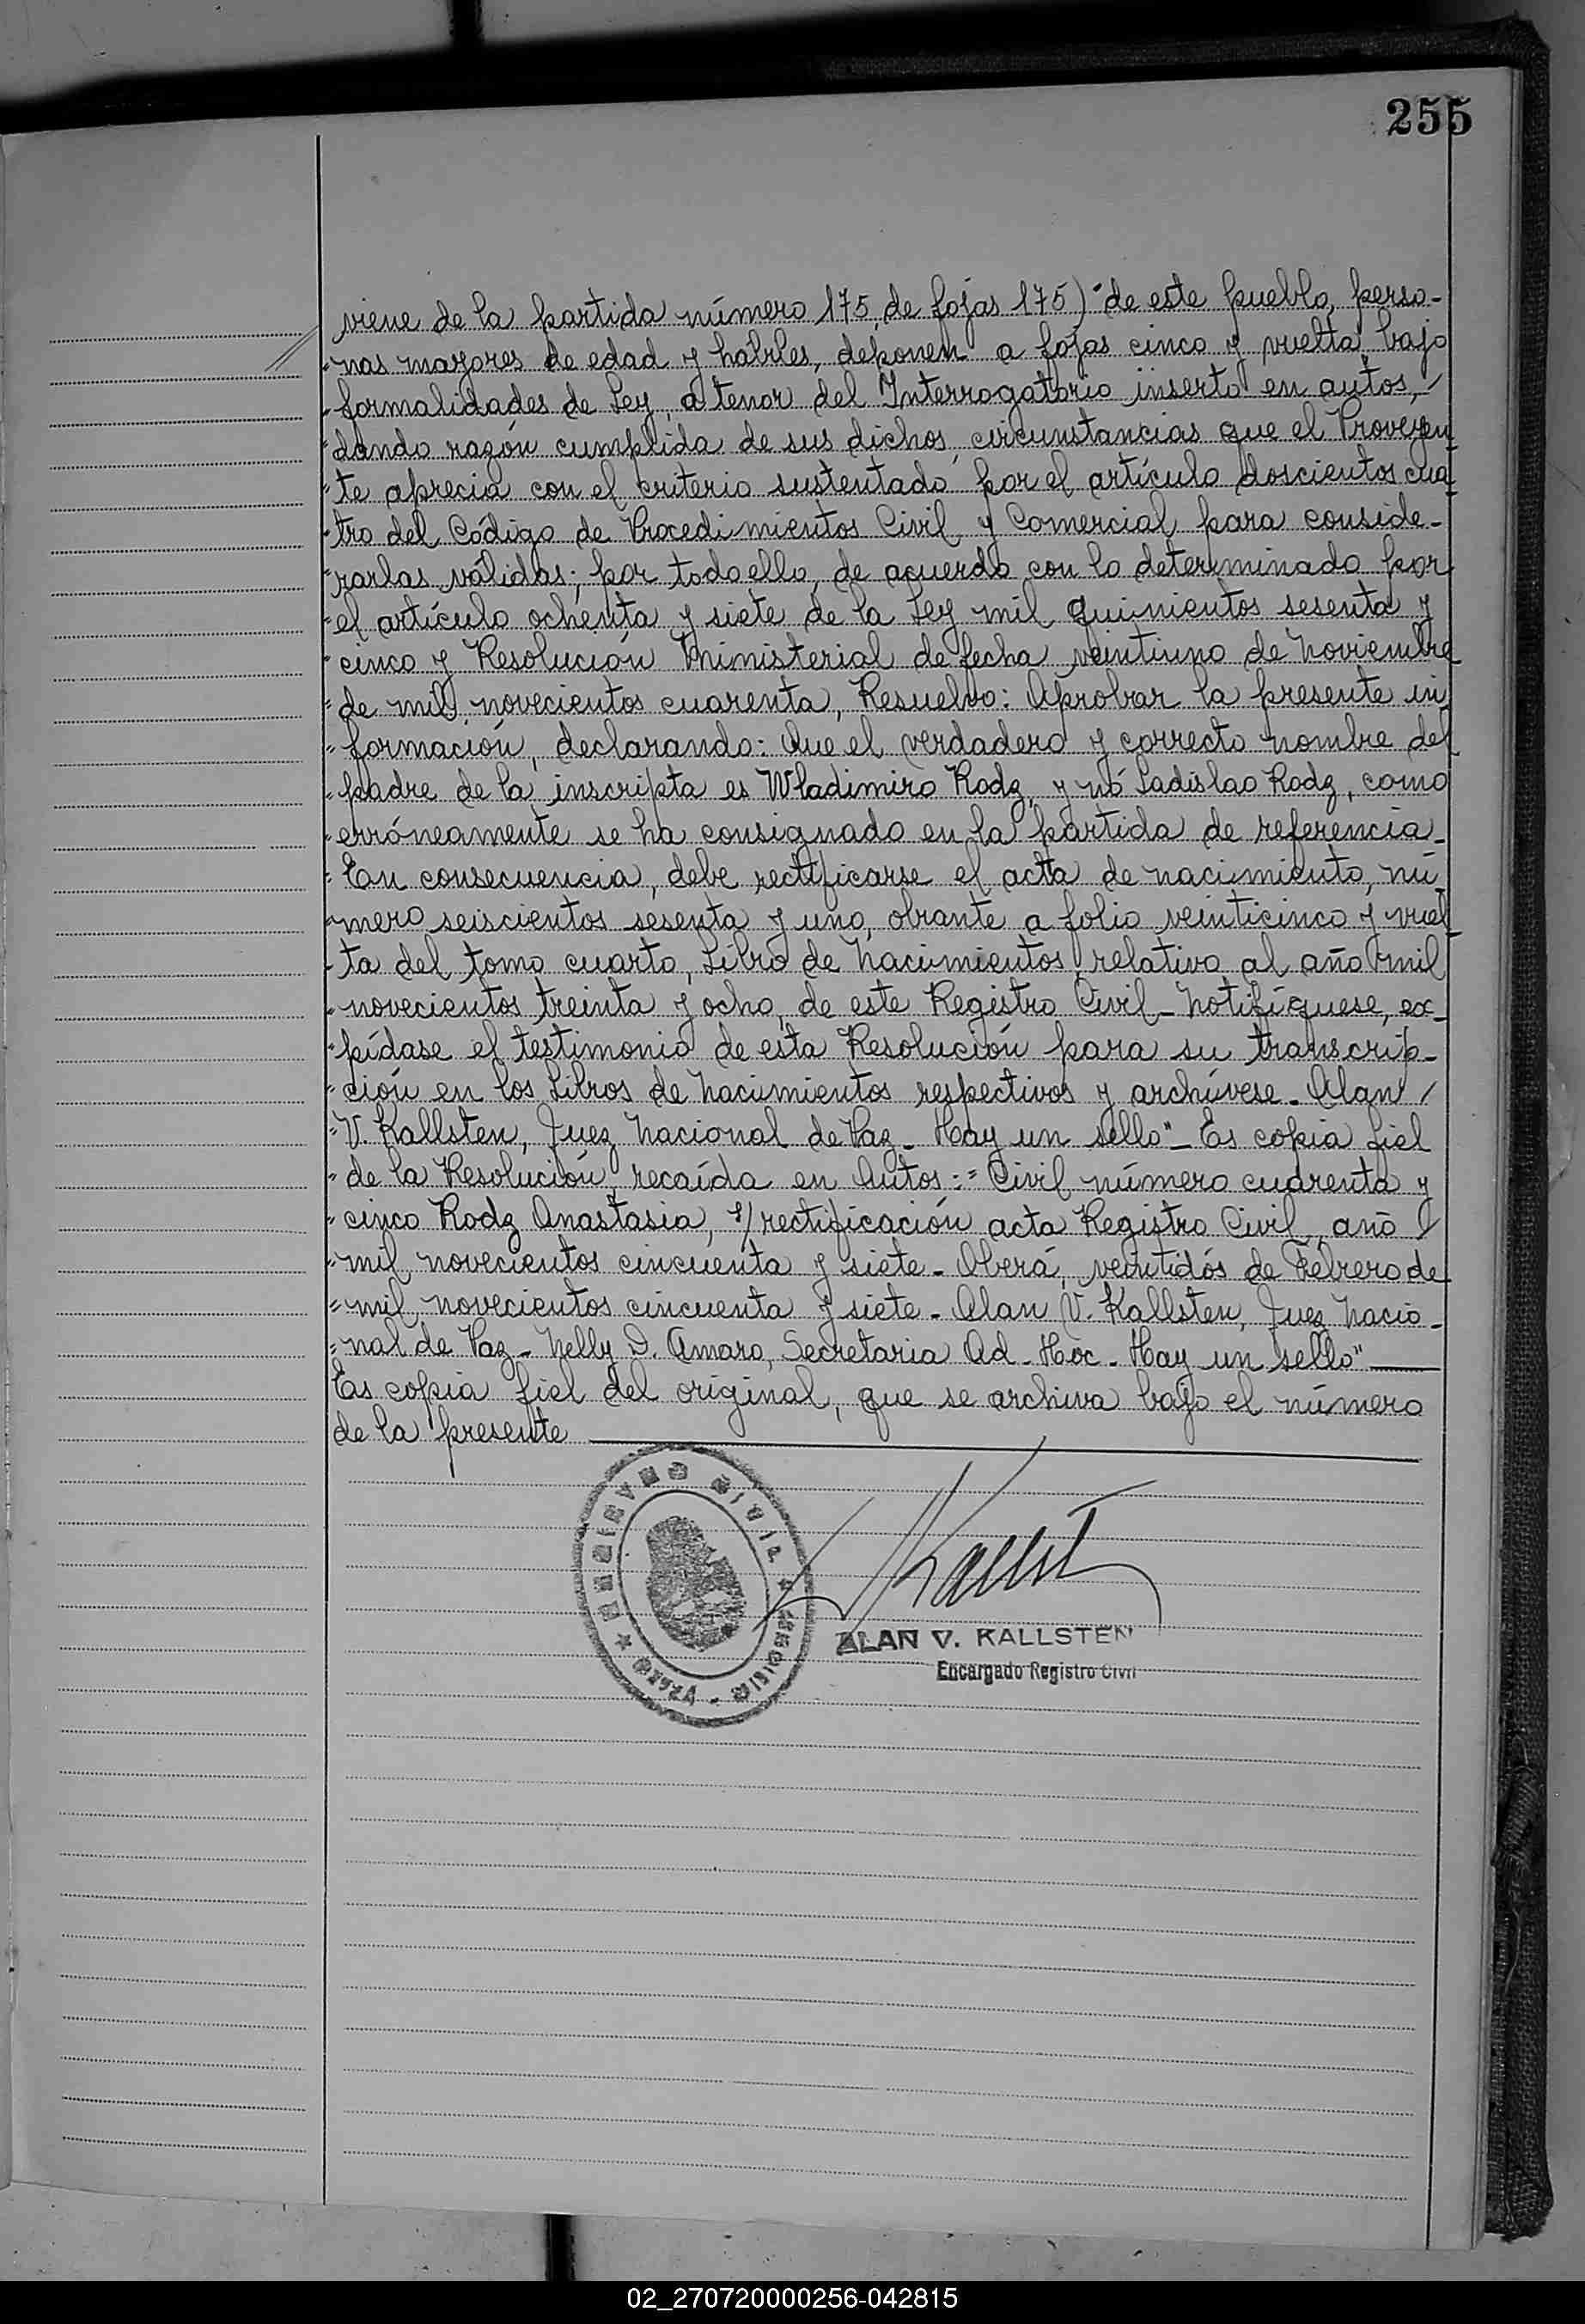 255
viene de la partida número 175, de fojas 175) "de este pueblo, perso-
"nas mayores de edad y hábiles, deponen a fojas cinco y vuelta, bajo
"formalidades de Ley, a tenor del Interrogatorio inserto en autos,
"dando razón cumplida de sus dichos, circunstancias que el Proveyen
"te aprecia con el criterio sustentado por el artículo doscientos cua-
"tro del Código de Procedimientos Civil y Comercial para conside-
"rarlas válidas; por todo ello, de acuerdo con lo determinado por
"el artículo ochenta y siete de la Ley mil quinientos sesenta y
"cinco y Resolución Ministerial de fecha veintiuno de Noviembre
"de mil novecientos cuarenta, Resuelvo: Aprobar la presente in
"formación, declarando: Que el verdadero y correcto nombre del
"padre de la inscripta es Wladimiro Rodz, y nó Ladislao Rodz, como
"erróneamente se ha consignado en la partida de referencia-
"En consecuencia, debe rectificarse el acta de nacimiento, nú-
"mero seiscientos sesenta y uno, obrante a folio veinticinco y vuel-
"ta del tomo cuarto, Libro de Nacimientos, relativo al año mil
"novecientos treinta y ocho, de este Registro Civil- Notifíquese, ex-
"pídase el testimonio de esta Resolución para su transcrip-
"ción en los Libros de Nacimientos respectivos y archívese- Alan /
"V. Kallsten, Juez Nacional de Paz- Hay un sello"- Es copia fiel
"de la Resolución, recaída en Autos:= Civil número cuarenta y
"cinco Rodz Anastasia, s/rectificación acta Registro Civil, año /
"mil novecientos cincuenta y siete- Oberá, veintidós de Febrero de
"mil novecientos cincuenta y siete- Alan V. Kallsten, Juez Nacio-
"nal de Paz- Nelly D. Amaro, Secretaria Ad-Hoc- Hay un sello"
Es copia fiel del original, que se archiva bajo el número
de la presente
Kallst
ALAN V. KALLSTEN
Encargado Registro Civil
02_270720000256-042815